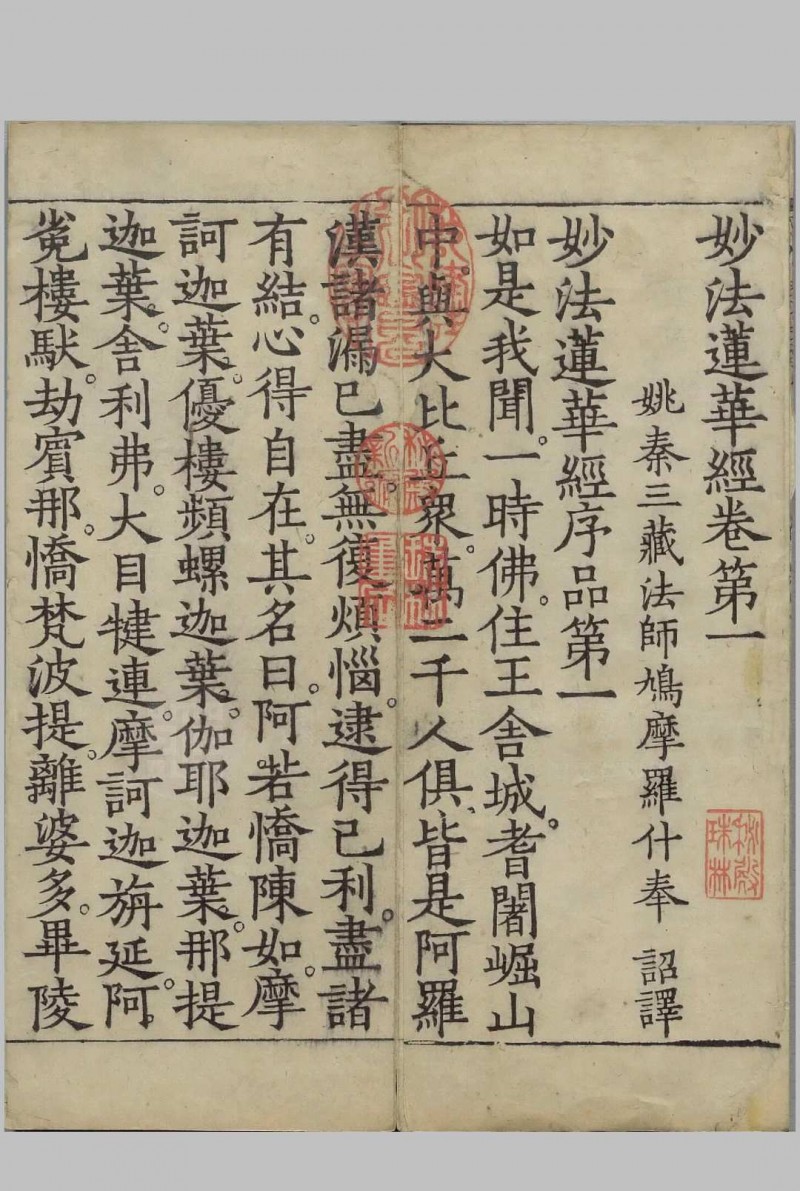 妙法蓮華經卷第一
姚秦三藏法師鳩摩羅什奉 詔譯
妙法蓮華經序品第一
如是我聞。一時佛。住王舍城。耆闍崛山
中。與大比丘眾。萬二千人俱。皆是阿羅
漢。諸漏已盡。無復煩惱。逮得己利。盡諸
有結。心得自在。其名曰。阿若憍陳如。摩
訶迦葉。優樓頻螺迦葉。伽耶迦葉。那提
迦葉。舍利弗。大目犍連。摩訶迦旃延。阿
㝹樓馱。劫賓那。憍梵波提。離婆多。畢陵